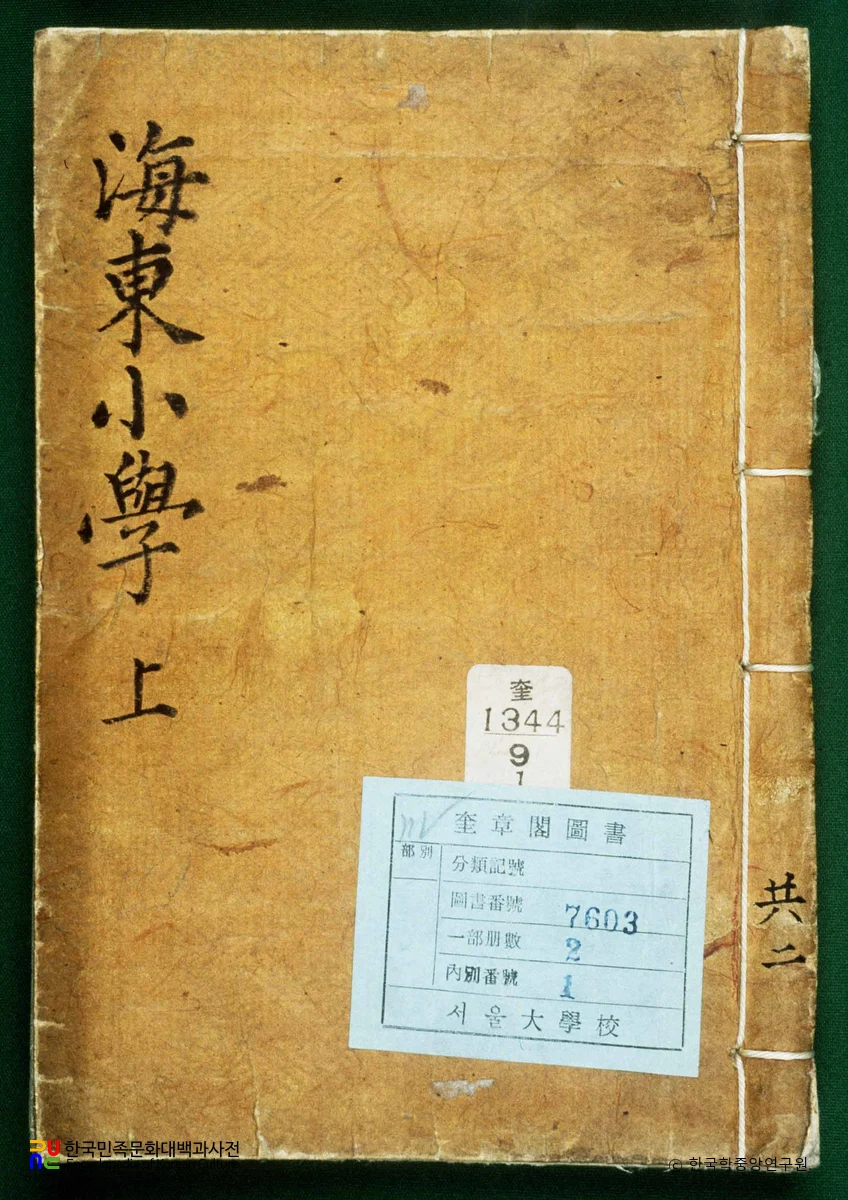 海東小學 上
共二
奎
1344
9
1
奎章閣圖書
部別
分類記號
圖書番號 7603
一部册數 2
內別番號 1
서울大學校
한국민족문화대백과사전
© 한국학중앙연구원